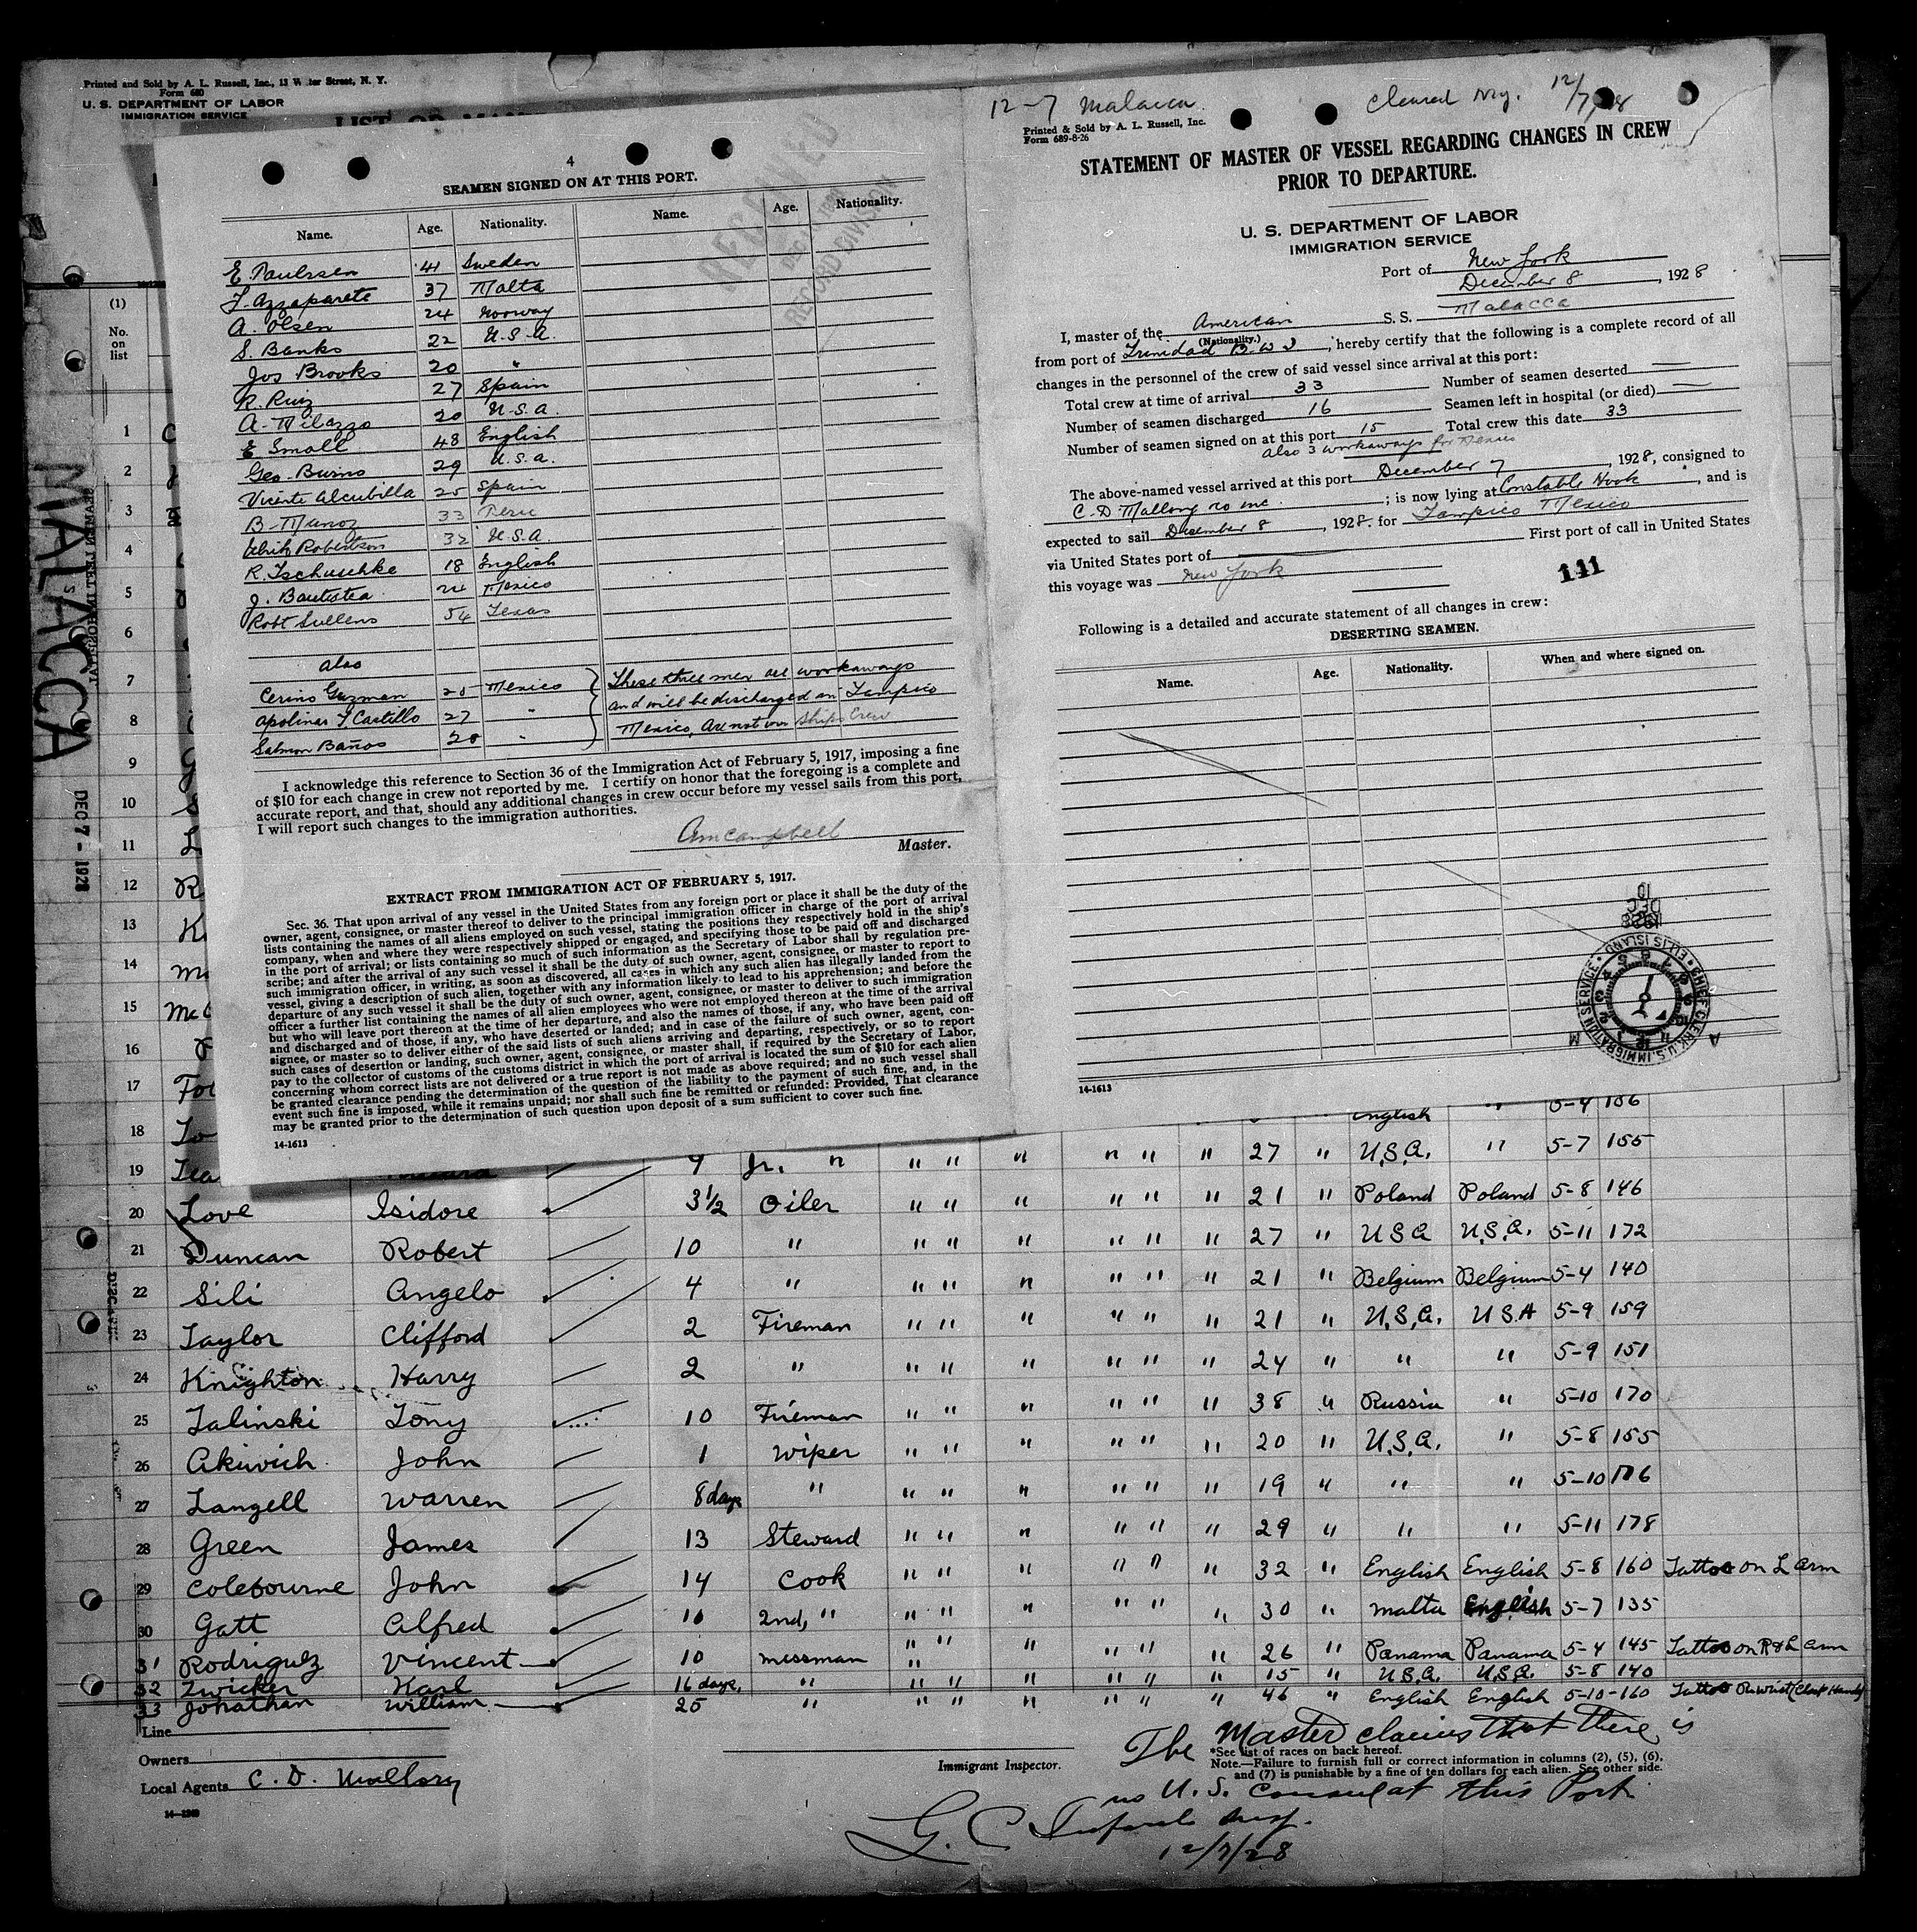 Printed and Sold by A. L. Russell, Inc., 13 Water Street, N. Y.
Form 680
U. S. DEPARTMENT OF LABOR
IMMIGRATION SERVICE
4
SEAMEN SIGNED ON AT THIS PORT.
Name. Age. Nationality. Name. Age. Nationality.
E. Paulssen 41 Sweden
J. Azzaparete 37 Malta
A. Olsen 24 Norway
S. Banks 22 U.S.A.
Jos Brooks 20 "
R. Ruiz 27 Spain
A. Milazzo 20 U.S.A.
E Small 48 English
Geo. Burns 29 U.S.A.
Vicente Alcubilla 25 Spain
B. Munoz 33 Peru
Ulrik Robertson 32 U.S.A.
R. Tschuschke 18 English
J. Bautista 24 Mexico
Robt Sullens 54 Texas
Also
Cerino Guzman 25 Mexico
Apolinar Y Castillo 27 "
Salmon Baños 28 "
These three men are workaways
and will be discharged in Tampico
Mexico, Are not on ships crew
I acknowledge this reference to Section 36 of the Immigration Act of February 5, 1917, imposing a fine
of $10 for each change in crew not reported by me. I certify on honor that the foregoing is a complete and
accurate report, and that, should any additional changes in crew occur before my vessel sails from this port,
I will report such changes to the immigration authorities.
AM Campbell
Master.
EXTRACT FROM IMMIGRATION ACT OF FEBRUARY 5, 1917.
Sec. 36. That upon arrival of any vessel in the United States from any foreign port or place it shall be the duty of the
owner, agent, consignee, or master thereof to deliver to the principal immigration officer in charge of the port of arrival
lists containing the names of all aliens employed on such vessel, stating the positions they respectively hold in the ship's
company, when and where they were respectively shipped or engaged, and specifying those to be paid off and discharged
in the port of arrival; or lists containing so much of such information as the Secretary of Labor shall by regulation pre-
scribe; and after the arrival of any such vessel it shall be the duty of such owner, agent, consignee, or master to report to
such immigration officer, in writing, as soon as discovered, all cases in which any such alien has illegally landed from the
vessel, giving a description of such alien, together with any information likely to lead to his apprehension; and before the
departure of any such vessel it shall be the duty of such owner, agent, consignee, or master to deliver to such immigration
officer a further list containing the names of all alien employees who were not employed thereon at the time of the arrival
but who will leave port thereon at the time of her departure, and also the names of those, if any, who have been paid off
and discharged and of those, if any, who have deserted or landed; and in case of the failure of such owner, agent, con-
signee, or master so to deliver either of the said lists of such aliens arriving and departing, respectively, or so to report
such cases of desertion or landing, such owner, agent, consignee, or master shall, if required by the Secretary of Labor,
pay to the collector of customs of the customs district in which the port of arrival is located the sum of $10 for each alien
concerning whom correct lists are not delivered or a true report is not made as above required; and no such vessel shall
be granted clearance pending the determination of the question of the liability to the payment of such fine, and, in the
event such fine is imposed, while it remains unpaid; nor shall such fine be remitted or refunded: Provided, That clearance
may be granted prior to the determination of such question upon deposit of a sum sufficient to cover such fine.
14-1613
RECEIVED
RECORD DIVISION
12-7 Malacca. Cleared 12/7/28
Printed & Sold by A. L. Russell, Inc.
Form 689-8-26
STATEMENT OF MASTER OF VESSEL REGARDING CHANGES IN CREW
PRIOR TO DEPARTURE.
U. S. DEPARTMENT OF LABOR
IMMIGRATION SERVICE
Port of New York
December 8, 1928
I, master of the American S. S. Malacca
(Nationality.)
from port of Trinidad B.W.I., hereby certify that the following is a complete record of all
changes in the personnel of the crew of said vessel since arrival at this port:
Total crew at time of arrival 33 Number of seamen deserted —
Number of seamen discharged 16 Seamen left in hospital (or died) —
Number of seamen signed on at this port 15 Total crew this date 33
Also 3 workaways for Mexico
The above-named vessel arrived at this port December 7, 1928, consigned to
C. D. Mallory Co Inc.; is now lying at Constable Hook, and is
expected to sail December 8, 1928. for Tampico Mexico
via United States port of First port of call in United States
this voyage was New York
141
Following is a detailed and accurate statement of all changes in crew:
DESERTING SEAMEN.
Name. Age. Nationality. When and where signed on.
1928
DEC
10
CHIEF CLERK, U.S. IMMIGRATION SERVICE • ELLIS ISLAND •
14-1613
MALACCA
DEC 7 - 1928
(1)
No. on list
1
2
3
4
5
6
7
8
9
10
11
12
13
14
15
16
17
18 English " 5-4 136
19 4 Jr. " " " " " " " 27 " U.S.A. " 5-7 155
20 Love Isidore 3½ Oiler " " " " " " 21 " Poland Poland 5-8 146
21 Duncan Robert 10 " " " " " " " 27 " USA U.S.A. 5-11 172
22 Sili Angelo 4 " " " " " " " 21 " Belgium Belgium 5-4 140
23 Taylor Clifford 2 Fireman " " " " " " 21 " U.S.A. USA 5-9 159
24 Knighton Harry 2 " " " " " " " 24 " " " 5-9 151
25 Talinski Tony 10 Fireman " " " " " " 38 " Russia " 5-10 170
26 Akuvich John 1 Wiper " " " " " " 20 " U.S.A. " 5-8 155
27 Langell Warren 8 days " " " " " " " 19 " " " 5-10 176
28 Green James 13 Steward " " " " " " 29 " " " 5-11 178
29 Colebourne John 14 Cook " " " " " " 32 " English English 5-8 160 Tattoo on L arm
30 Gatt Alfred 10 2nd, " " " " " " " 30 " Malta English 5-7 135
31 Rodriguez Vincent 10 messman " " " " " " 26 " Panama Panama 5-4 145 Tattoo on R & L arm
32 Zwicker Karl 16 days, " " " " " " " 15 " U.S.A. U.S.A. 5-8 140
33 Jonathan William 25 " " " " " " " 46 " English English 5-10-160
Line
Owners
Local Agents C. D. Mallory
14—1240
Immigrant Inspector.
The Master claims that there is
*See list of races on back hereof.
Note.—Failure to furnish full or correct information in columns (2), (5), (6),
and (7) is punishable by a fine of ten dollars for each alien. See other side.
no U. S. Consul at this Port
12/7/28